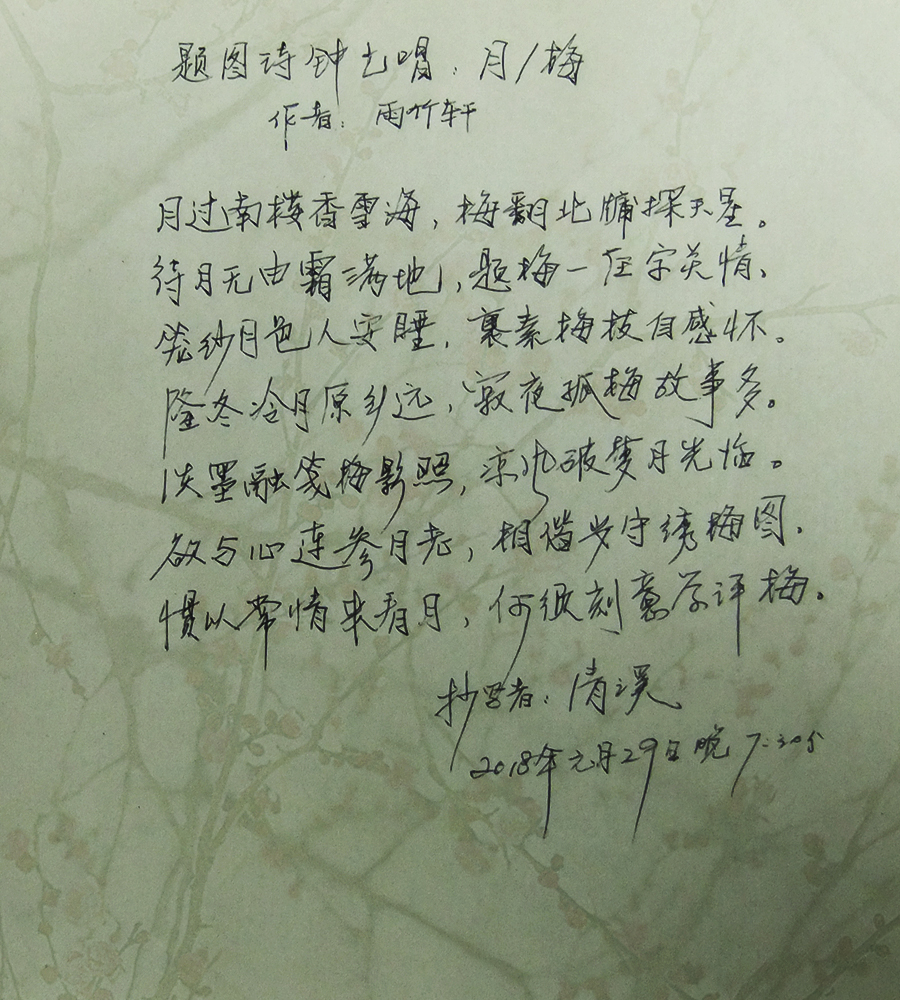 题图诗钟七唱:月/梅
作者:雨竹轩
月过南楼香雪海,梅翻北牖探天星。
待月无由霜满地,题梅一任字关情。
笼纱月色人安睡,裹素梅枝自感怀。
隆冬冷月原乡远,寂夜孤梅故事多。
淡墨融笺梅影照,凉风破梦月光临。
欲与心连参月老,相谐岁守绣梅图。
惯以常情来看月,何须刻意学评梅。
抄写者:清溪
2018年元月29日晚7:30分